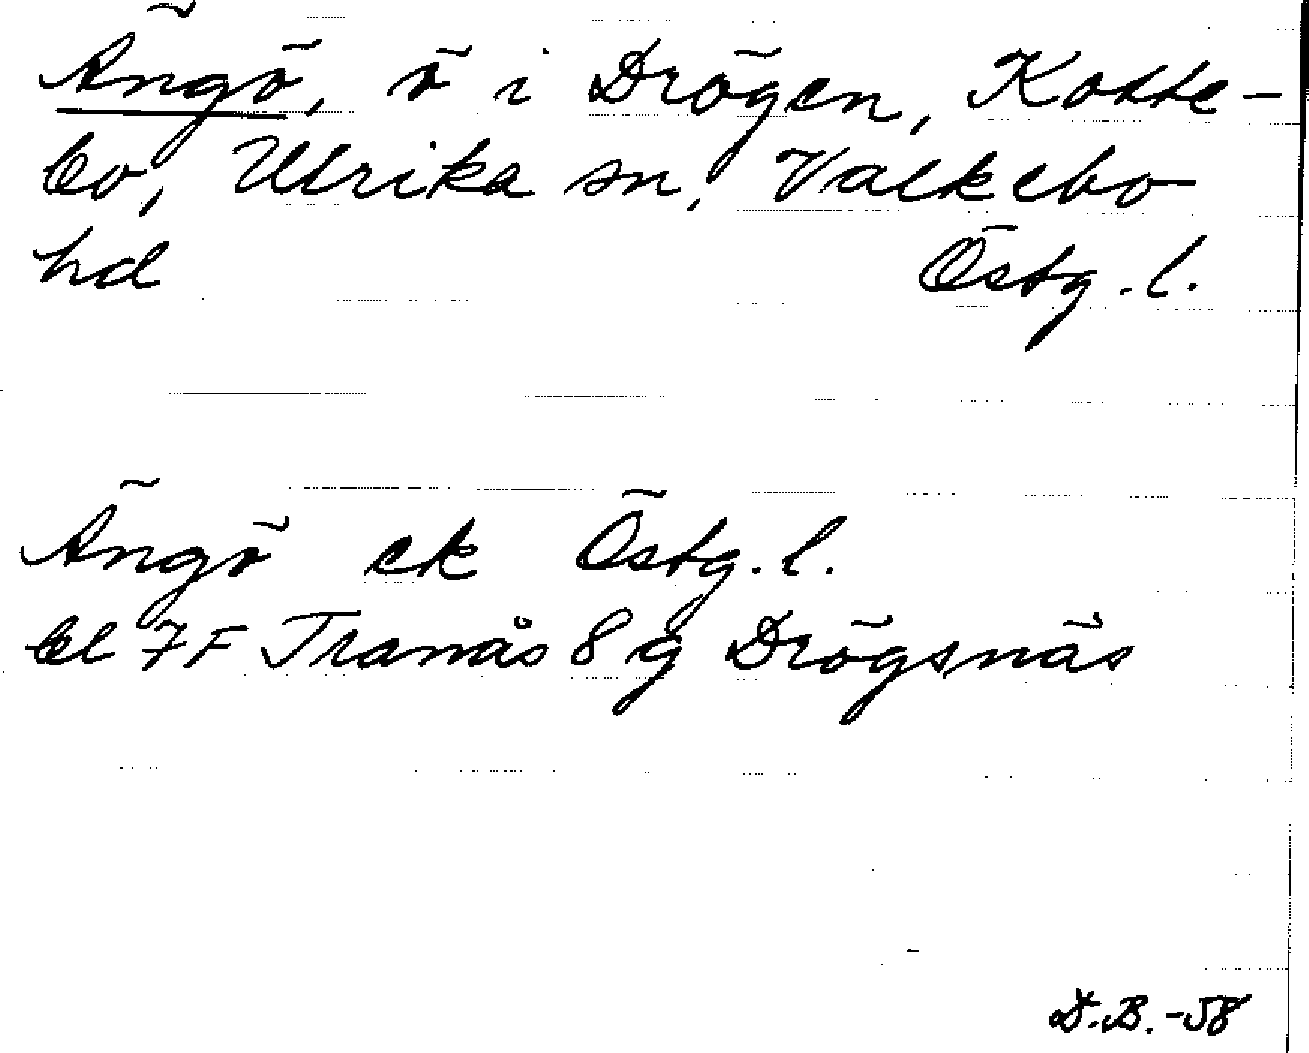 Ängö, ö i Drögen, Kotte-
bo, Ulrika sn, Valkebo
hd Östg. l.
Ängö ek Östg. l.
bl 7F Tranås 8 g Drögsnäs
D.B. -58